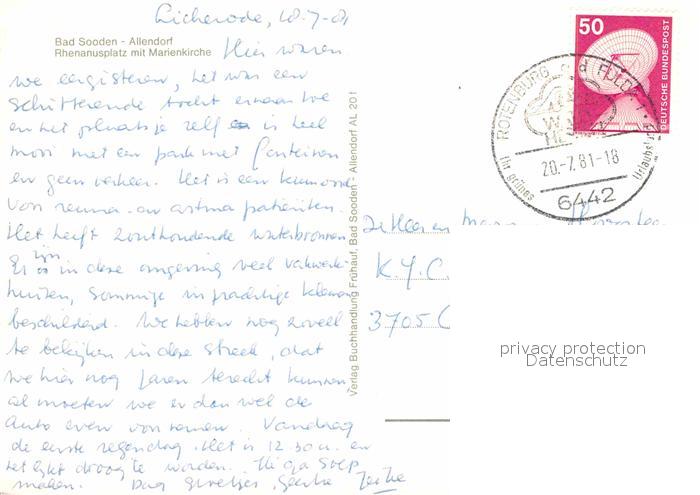 Licherode, 18-7-81
Bad Sooden - Allendorf
Rhenanusplatz mit Marienkirche
Hier waren
we eergisteren, het was een
schitterende tocht erheen toe
en het plaatsje zelf is heel
mooi met een park met fonteinen
en geen verkeer. Het is een kuuroord
voor reuma- en astma patienten.
Het heeft zouthoudende waterbronnen
Er zijn in deze omgeving veel vakwerk-
huizen, sommige in prachtige kleuren
beschilderd. We hebben nog zoveel
te bekijken in deze streek, dat
we hier nog jaren terecht kunnen
al moeten we er dan wel de
auto even voor nemen. Vandaag
de eerste regendag. Het is 12.30 u. en
het lijkt droog te worden. Ik ga soep
maken. Dag groetjes,
Verlag Buchhandlung Frühauf, Bad Sooden - Allendorf AL 201
50
DEUTSCHE BUNDESPOST
ROTENBURG a d FULDA 1
20.-7.81-18
6442
Im grünen
Urlaubst
de Heer en
K.Y.C.
3705 C
privacy protection
Datenschutz